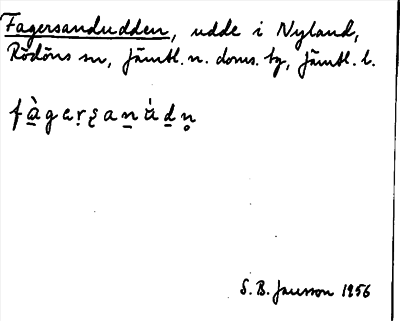 Fagersandudden, udde i Nyland,
Rödöns sn, Jämtl. n. doms. tg, Jämtl. l.
S. B. Jansson 1956